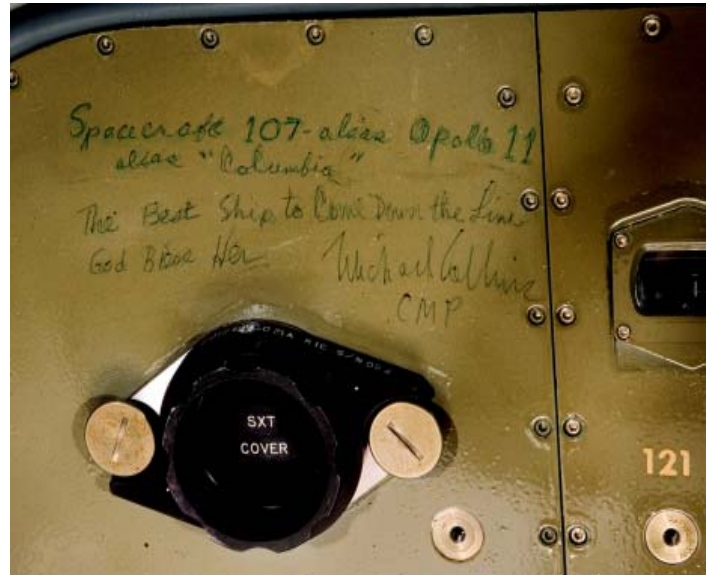 Spacecraft 107-alias Apollo 11
alias "Columbia"
The Best Ship to Come Down the Line
God Bless Her
Michael Collins
CMP
SXT
COVER
121